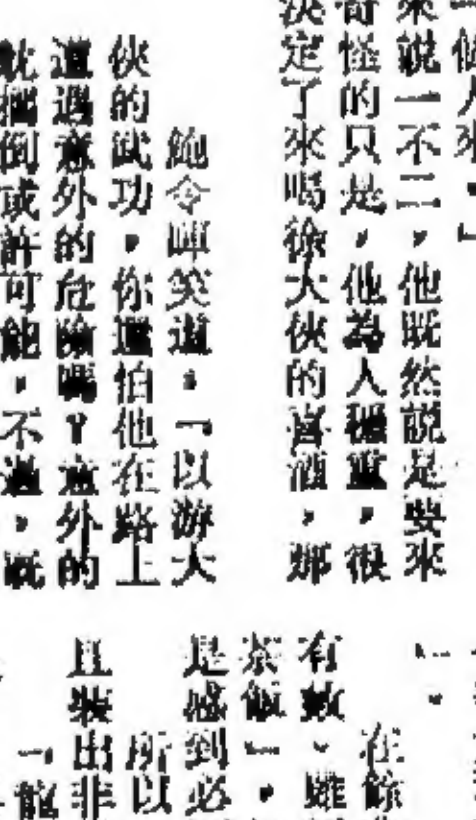 個人來。」
來說一不二，他既然說是要來
奇怪的只是，他為人穩重，很
決定了來喝徐大俠的喜酒，那
鮑令暉笑道：「以游大
俠的武功，你還怕他在路上
遭遇意外的危險嗎？意外的
倒或許可能，不過，既
在餘
有數、雖
茶飯」，
是感到必
所以
且裝出非
「龍